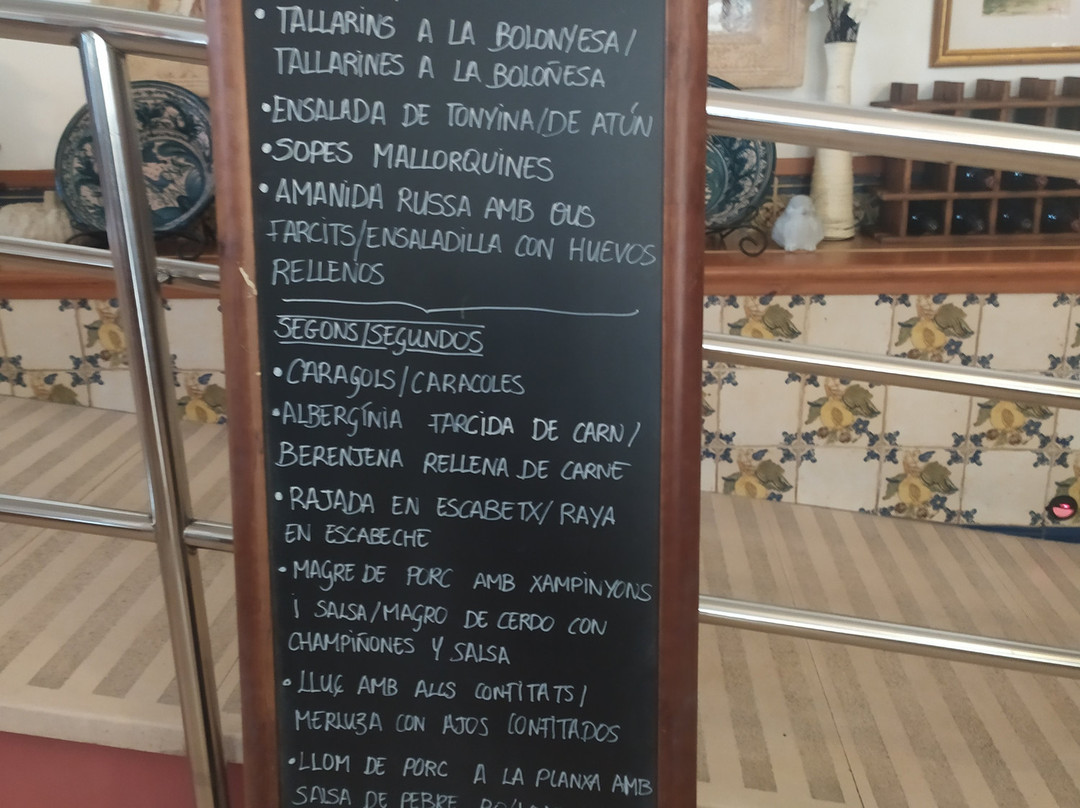 • TALLARINS A LA BOLONYESA/
TALLARINES A LA BOLOÑESA
• ENSALADA DE TONYINA/DE ATÚN
• SOPES MALLORQUINES
• AMANIDA RUSSA AMB OUS
FARCITS/ENSALADILLA CON HUEVOS
RELLENOS
SEGONS/SEGUNDOS
• CARAGOLS/CARACOLES
• ALBERGÍNIA FARCIDA DE CARN/
BERENJENA RELLENA DE CARNE
• RAJADA EN ESCABETX/RAYA
EN ESCABECHE
• MAGRE DE PORC AMB XAMPINYONS
I SALSA/MAGRO DE CERDO CON
CHAMPIÑONES Y SALSA
• LLUÇ AMB ALLS CONFITATS/
MERLUZA CON AJOS CONFITADOS
• LLOM DE PORC A LA PLANXA AMB
SALSA DE PEBRE